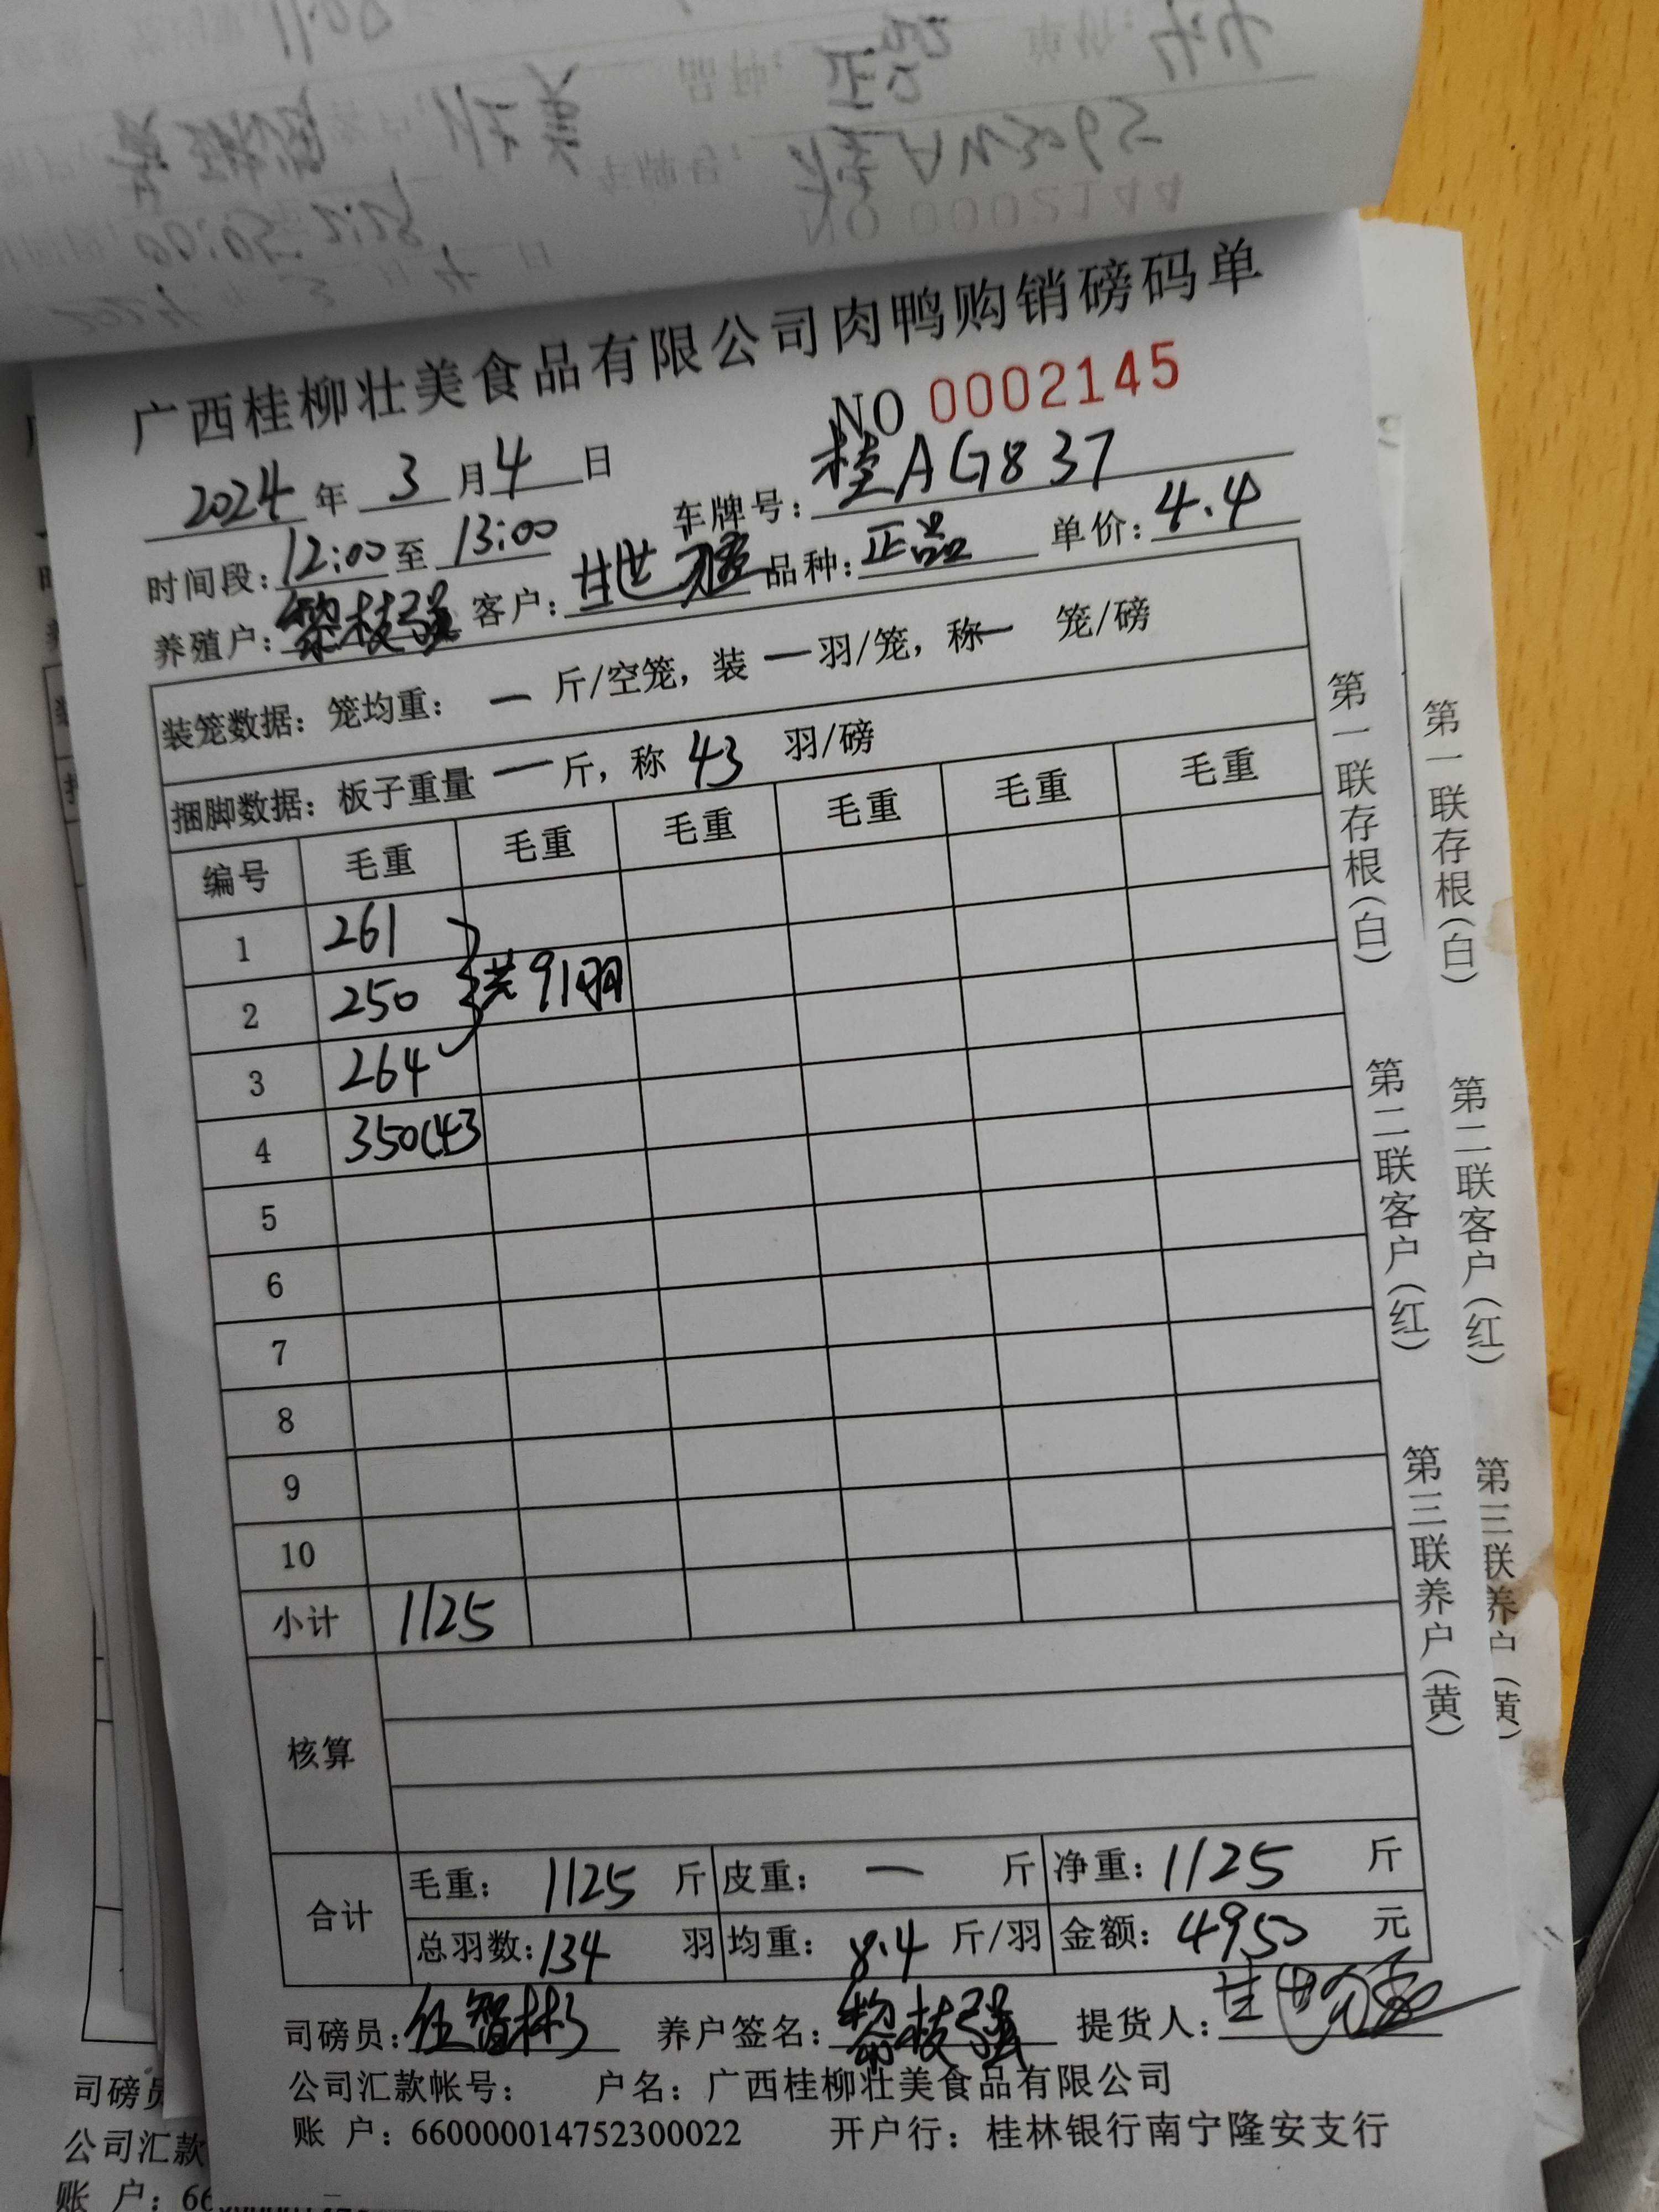 广西桂柳壮美食品有限公司肉鸭购销磅码单
NO 0002145
2024年 3月4日
车牌号：桂AG837
时间段：12:00至13:00
养殖户：黎枝强 客户：甘世 品种：正品 单价：4.4
装笼数据：笼均重：一 斤/空笼，装一羽/笼，称一 笼/磅
捆脚数据：板子重量 一斤，称 43 羽/磅
编号 毛重 毛重 毛重 毛重 毛重 毛重
1 261
2 250 共91羽
3 264
4 350(43
5
6
7
8
9
10
小计 1125
核算
合计 毛重：1125 斤 皮重：一 斤 净重：1125 斤
总羽数：134 羽 均重：8.4 斤/羽 金额：4950 元
司磅员：伍智彬 养户签名：黎枝强 提货人：甘世
公司汇款帐号： 户名：广西桂柳壮美食品有限公司
账 户：660000014752300022 开户行：桂林银行南宁隆安支行
第一联存根（白） 第二联客户（红） 第三联养户（黄）
第一联存根（白） 第二联客户（红） 第三联养户（黄）
司磅员
公司汇款
账 户：66